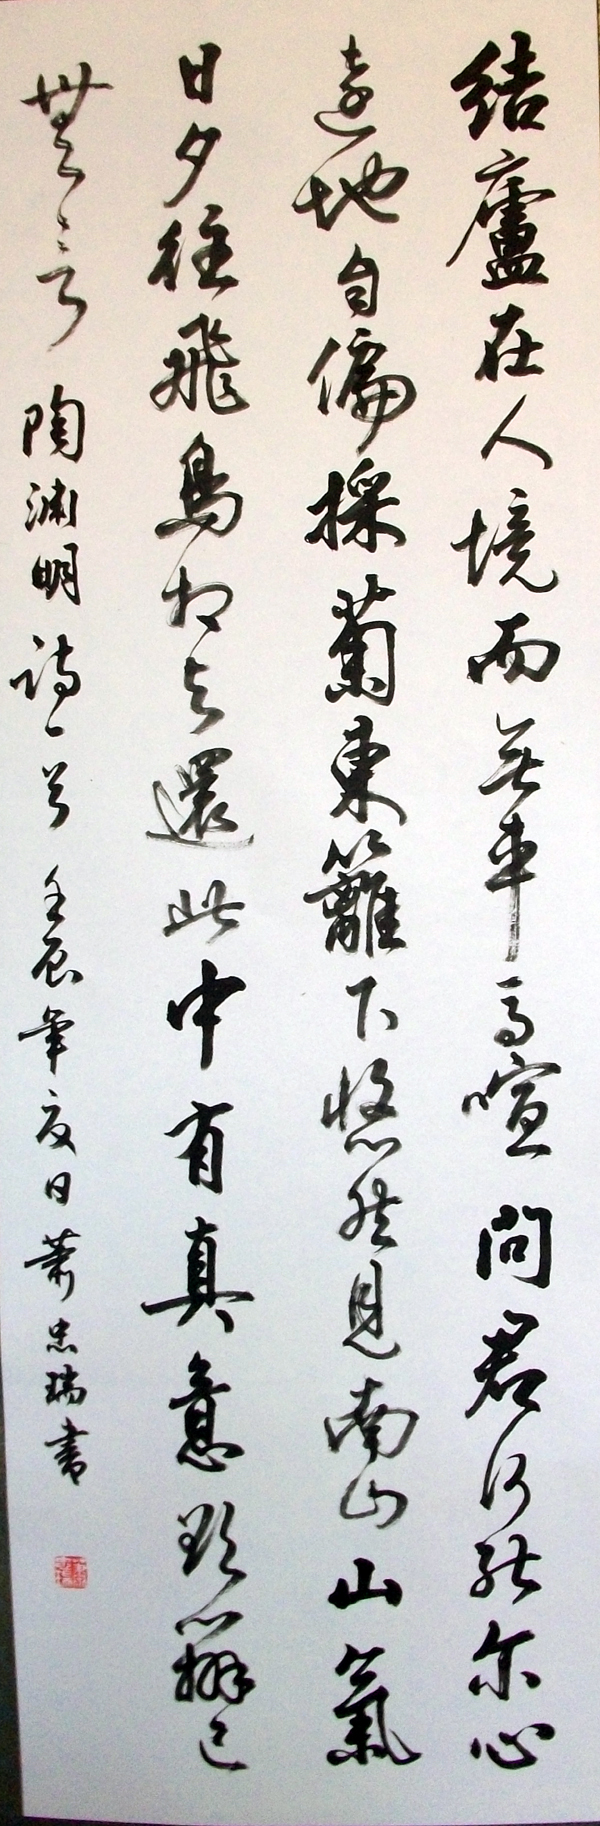 結廬在人境而無車馬喧問君何能尔心
遠地自偏採菊東籬下悠然見南山山氣
日夕佳飛鳥相与還此中有真意欲辨已
無言 陶渊明詩一首 壬辰年夏日蕭忠瑞書